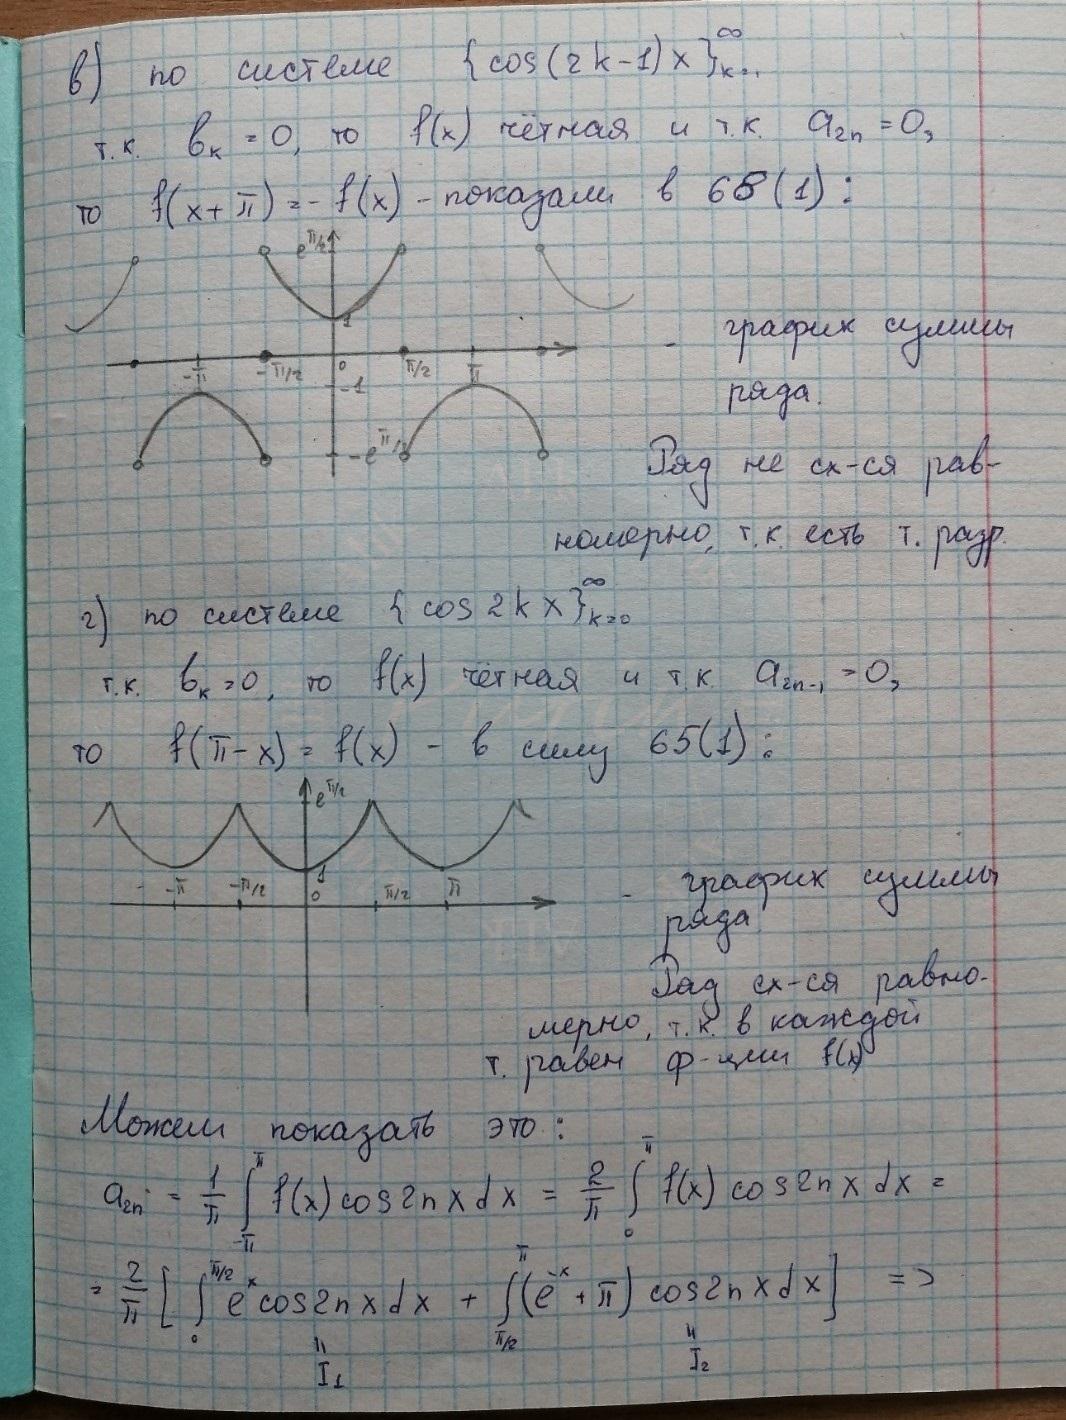 в) по системе {cos(2k-1)x}_{k=1}^∞
т.к. b_k = 0, то f(x) чётная и т.к. a_{2n} = 0,
то f(x+π) = -f(x) - показали в 65(1):
e^{π/2}
1
-π -π/2 0 π/2 π
-1
-e^{π/2}
- график суммы
ряда.
Ряд не сх-ся рав-
номерно, т.к. есть т. разр.
г) по системе {cos 2k x}_{k=0}^∞
т.к. b_k = 0, то f(x) чётная и т.к. a_{2n-1} = 0,
то f(π-x) = f(x) - в силу 65(1):
e^{π/2}
1
-π -π/2 0 π/2 π
- график суммы
ряда
Ряд сх-ся равно-
мерно, т.к. в каждой
т. равен ф-ции f(x)
Можем показать это:
a_{2n} = 1/π ∫_{-π}^{π} f(x) cos 2n x dx = 2/π ∫_0^π f(x) cos 2n x dx =
= 2/π [ ∫_0^{π/2} e^x cos 2n x dx + ∫_{π/2}^π (e^{-x} + π) cos 2n x dx ] =>
" "
I_1 I_2